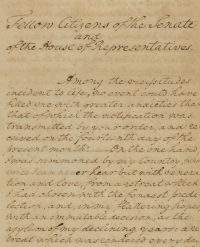 Fellow Citizens of the Senate
and
of the House of Representatives.
Among the vicissitudes
incident to life, no event could have
filled me with greater anxieties than
that of which the notification was
transmitted by your order, and re-
ceived on the fourteenth day of the
present month: On the one hand,
I was summoned by my Country, whose
voice I can never hear but with venera-
tion and love, from a retreat which
I had chosen with the fondest predi-
lection, and, in my flattering hopes,
with an immutable decision, as the
asylum of my declining years: a re-
treat which was rendered every day